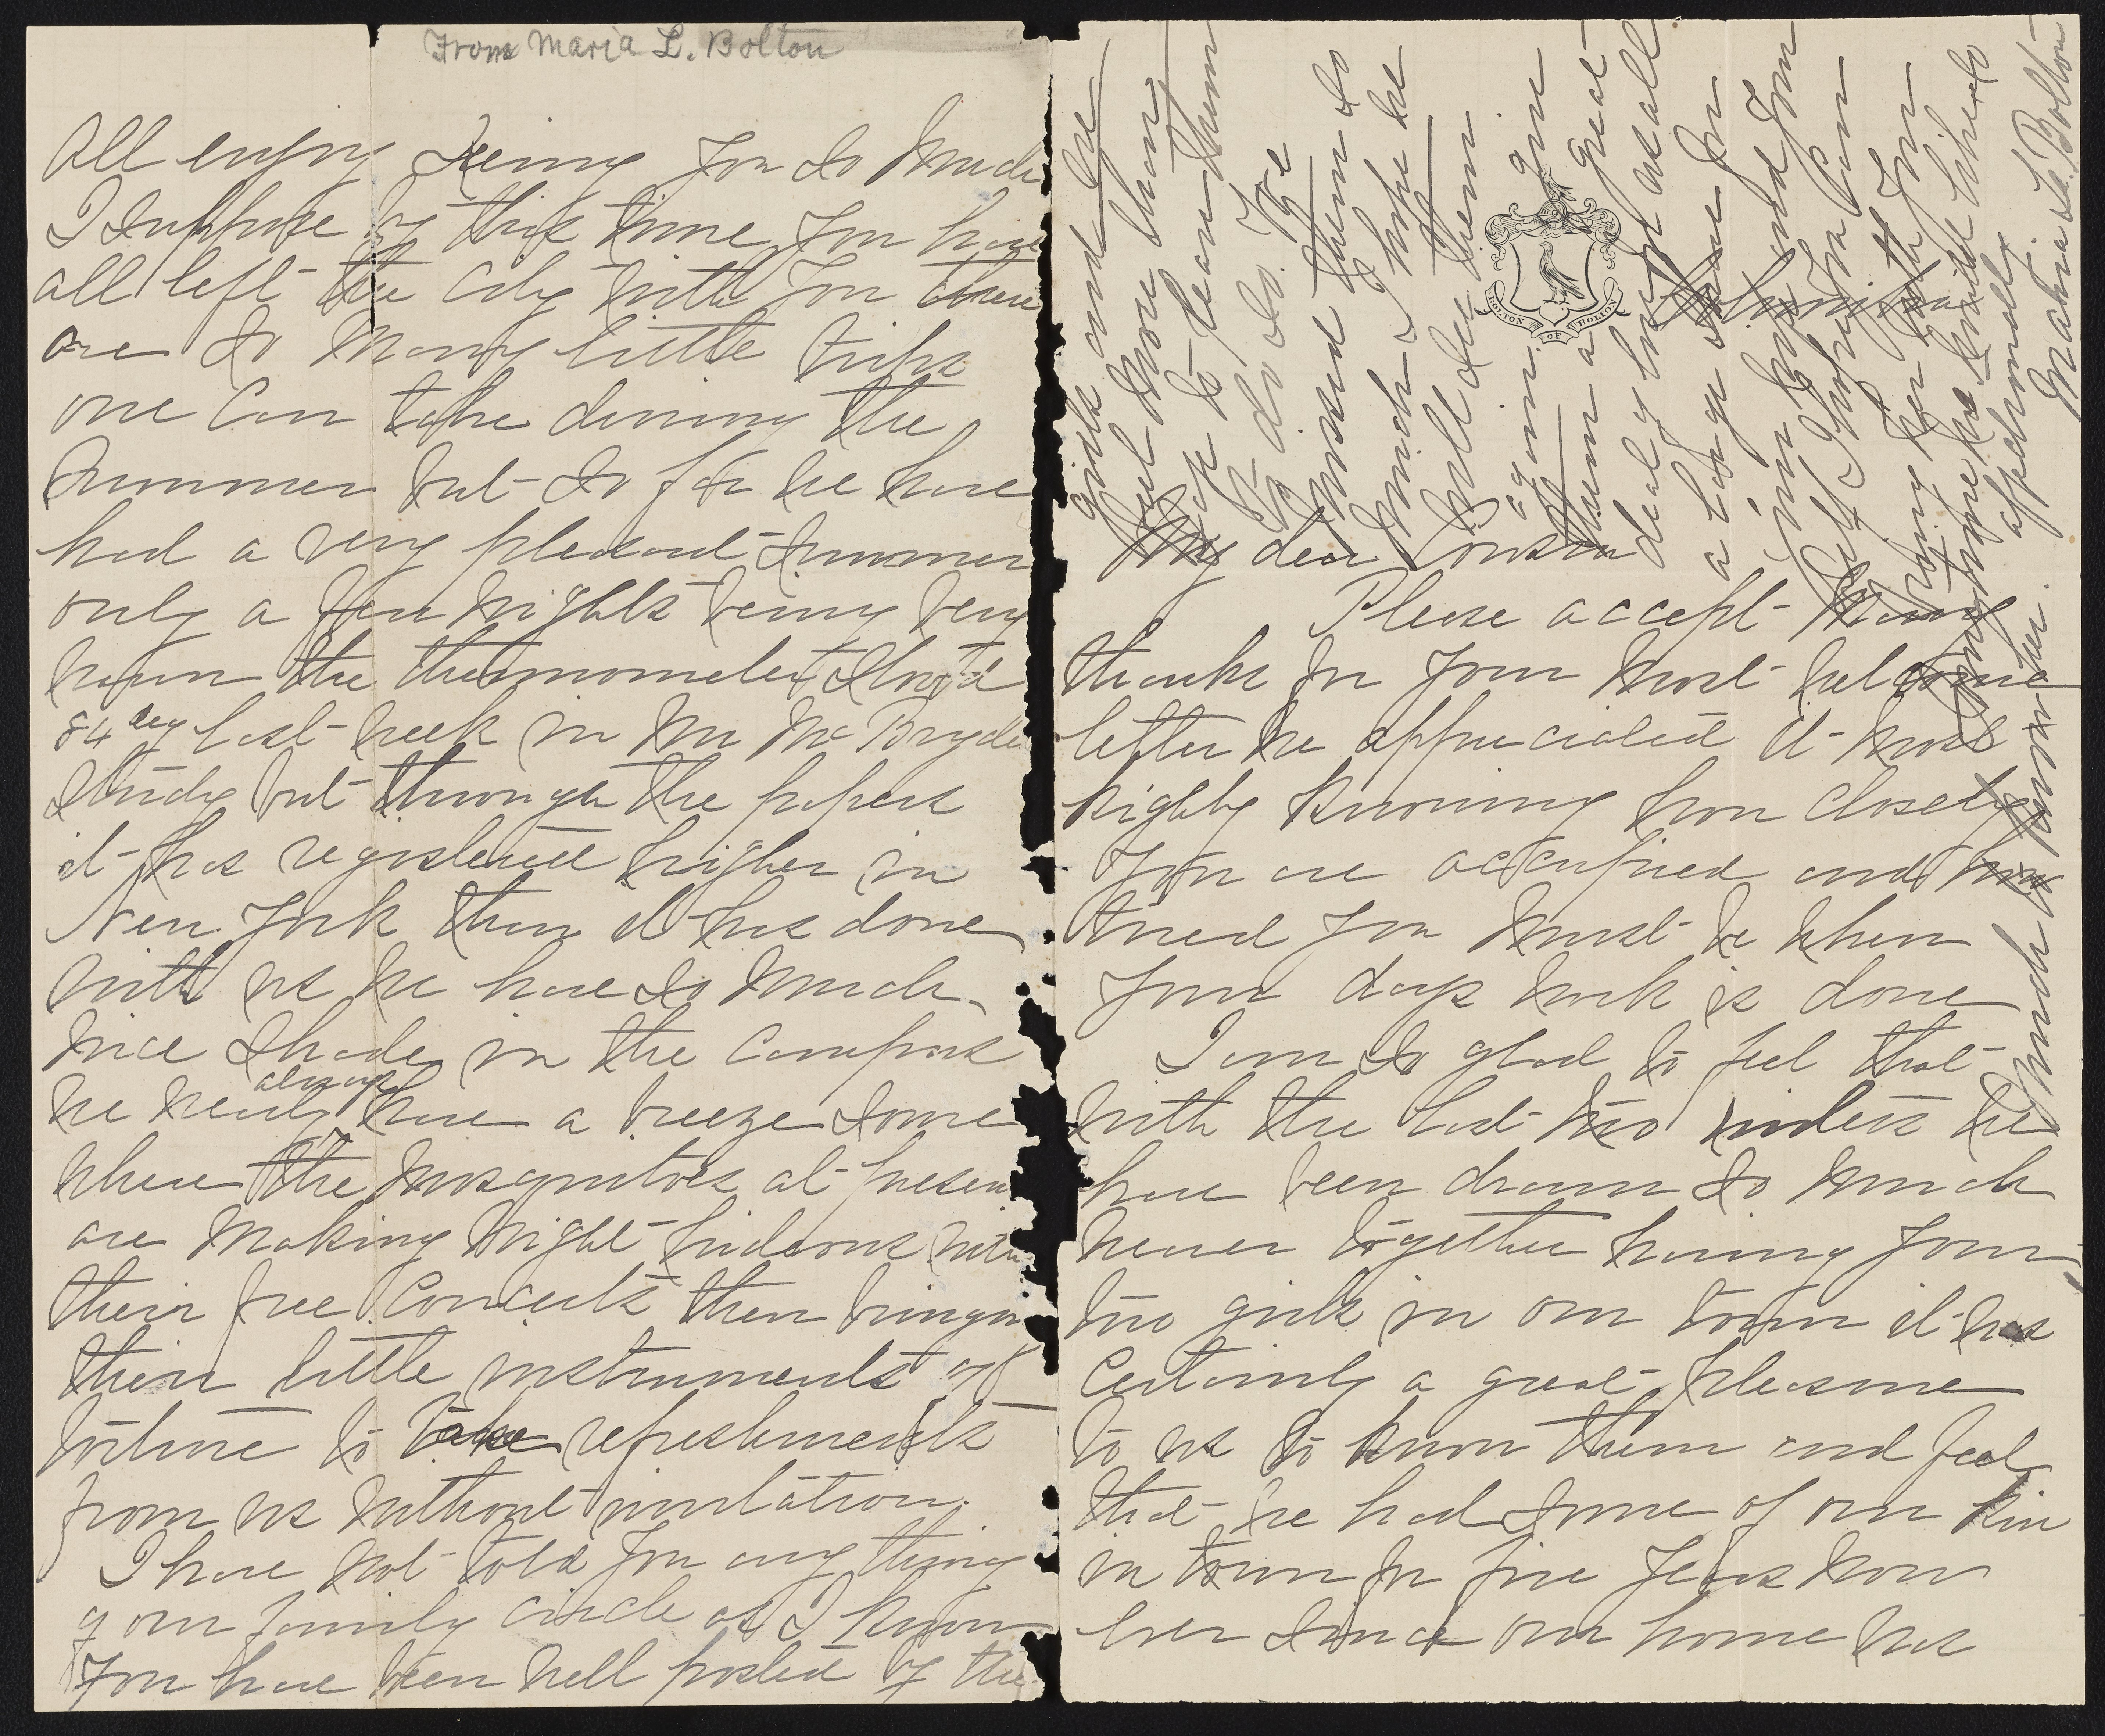 From Maria L. Bolton
all enjoy seeing you so much
I suppose by this time you have
all left the city with you there
are so many little trips
one can take during the
summer but so far we have
had a very pleasant summer
only a few nights being very
warm the thermometer stood
84 deg last week in Mr McBryde
study but through the papers
it has registered higher in
New York than it has done
with us we have so much
nice shade in the campus
we nearly always have a breeze some
where the mosquitoes at present
are making night hideous with
their free concerts then bringing
their little instruments of
torture to take refreshments
from us without invitation.
I have not told you any thing
of our family circle as I know
you have been well posted by the
BOLTON OF BOLTON
Columbia
My dear Cousin
Please accept many
thanks for your most welcome
letter we appreciated it most
highly knowing how closely
you are occupied and how
tired you must be when
your days work is done
I am so glad to feel that
with the last two winters we
have been drawn so much
nearer together having your
two girls in our town it has
certainly a great pleasure
to us to know them and feel
that we had some of our kin
in town for five years now
ever since our home has
girls and we
feel more than
to do so. We
missed them so
much I hope we
will see them
again give
them a great
deal of love
a large share for
your and you
affectionately
Maria L. Bolton